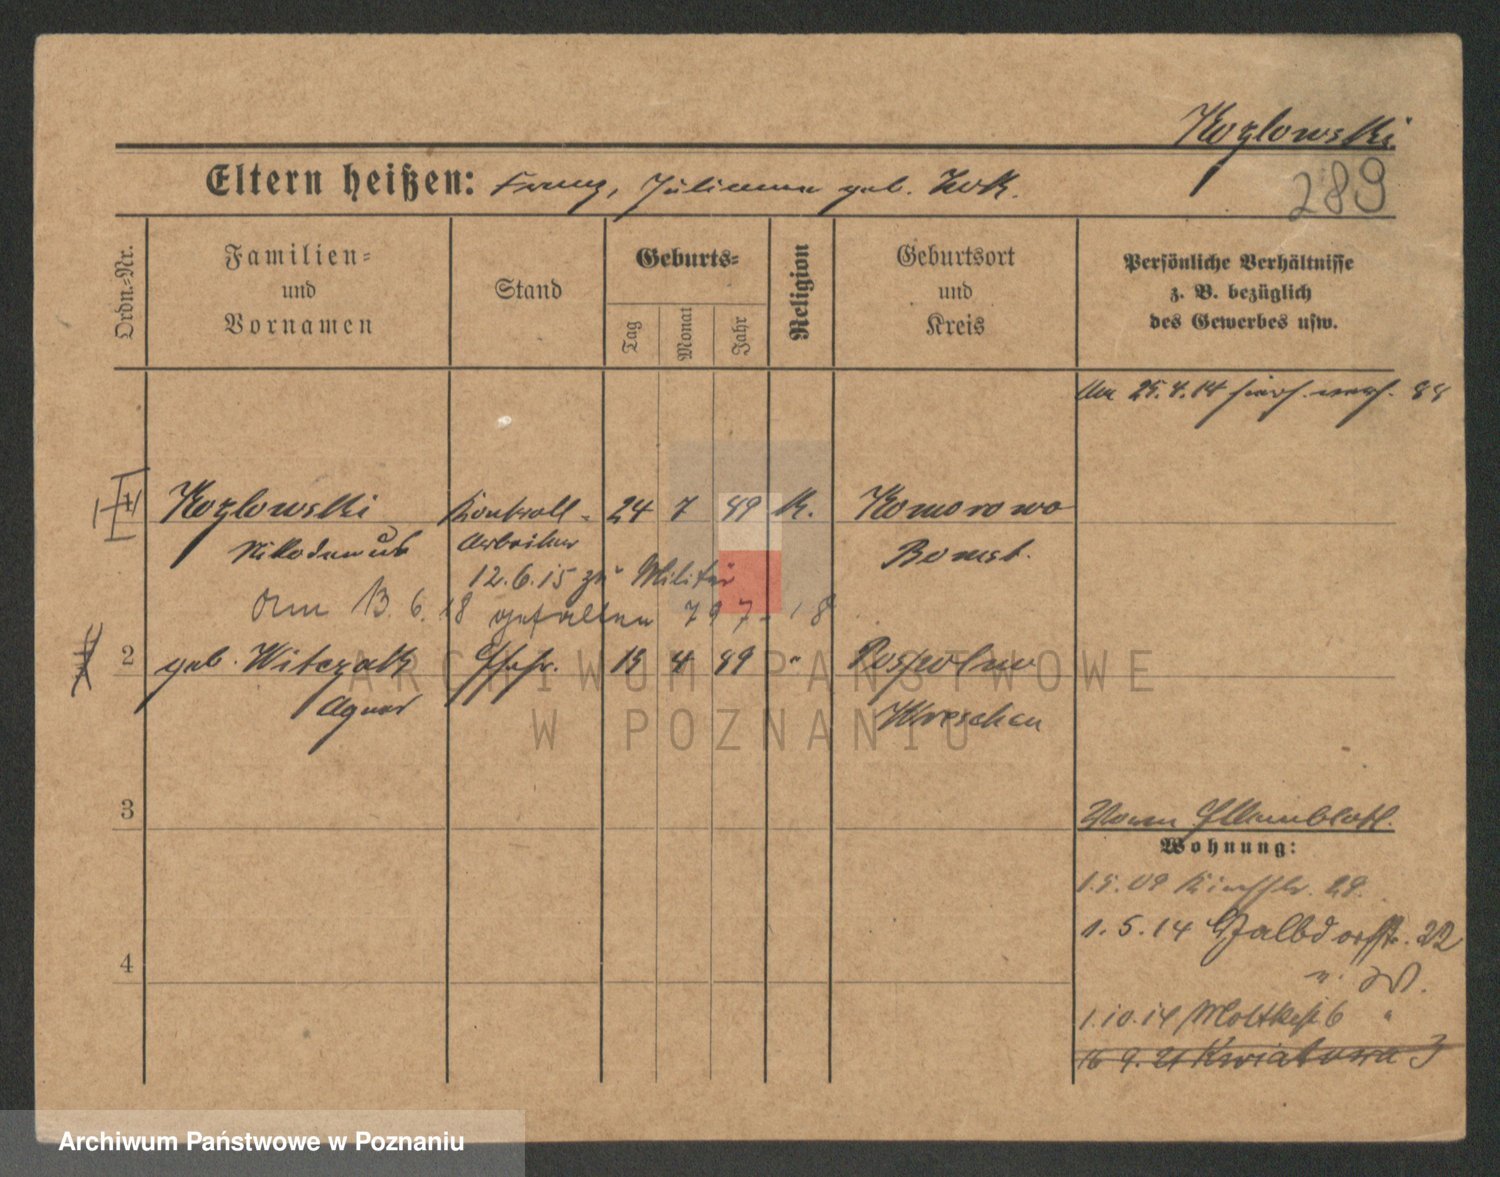 Kozlowski
289
Eltern heißen: Franz, Julianna geb. Kok.
Ordn.-Nr.
Familien- und Vornamen
Stand
Geburts-
Tag
Monat
Jahr
Religion
Geburtsort und Kreis
Persönliche Verhältnisse z. B. bezüglich des Gewerbes usw.
Am 25.4.14
Kozlowski Kontroll- 24 7 89 k. Komorowo
Nikodemus Arbeiter Bomst.
12.6.15 zu Militär
Am 13.6.18 gefallen 79 7. 18
2 geb. Witczak Ehefr. 15 4 89 " 
Agnes Wreschen
3
Wohnung:
1.5.09 29.
4
1.5.14 22
1.10.14 Moltkestr. 6 "
16 9. 21 Kwiatowa 3
ARCHIWUM PAŃSTWOWE
W POZNANIU
Archiwum Państwowe w Poznaniu